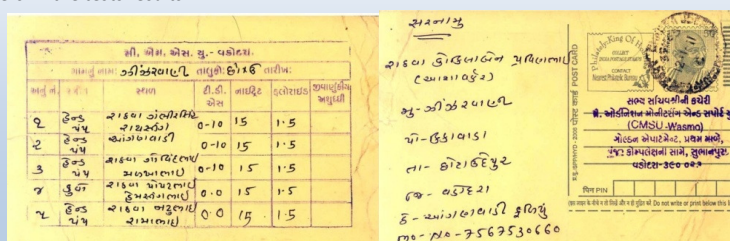 સી. એમ. એસ. યુ.- વડોદરા.
ગામનું નામ: ઝીંઝરવાણી તાલુકો: છો.ઉદે તારીખ:
અનું નં. સ્ત્રોત સ્થળ ટી.ડી. એસ નાઇટ્રેટ ફ્લોરાઇડ જીવાણુંકીય અશુધ્ધી
૧ હેન્ડ પંપ રાઠવા ગંભીરસિંહ રાયસીંગ 0-10 15 1.5
૨ હેન્ડ પંપ આંગણવાડી 0-10 15 1.5
૩ હેન્ડ પંપ રાઠવા ગોવિંદભાઇ 0-10 15 1.5
૪ કુવા રાઠવા પોપટભાઇ 0.0 15 1.5
૫ હેન્ડ પંપ રાઠવા નટુભાઇ રામાભાઇ 0.0 15 1.5
સરનામુ
રાઠવા કોકિલાબેન પ્રવિણભાઇ
(આશાવર્કર)
મુ-ઝીંઝરવાણી
પો-કુકાવાડા
તા- છોટાઉદેપુર
જી- વડોદરા
ઠે-આંગણવાડી ફળિયું
mo-No-7567530660
पोस्ट कार्ड POST CARD
Philately-King Of Ho
CONTACT
સભ્ય સચિવશ્રીની કચેરી
કો. ઓર્ડીનેશન મોનીટરીંગ એન્ડ સપોર્ટ યુ
(CMSU-Wasmo)
ગોલ્ડન એપાર્ટમેન્ટ, પ્રથમ માળે,
કોમ્પલેક્ષની સામે, સુભાનપુરા,
વડોદરા-૩૯૦ ૦૨૩
पिन PIN
Do not write or print below this l